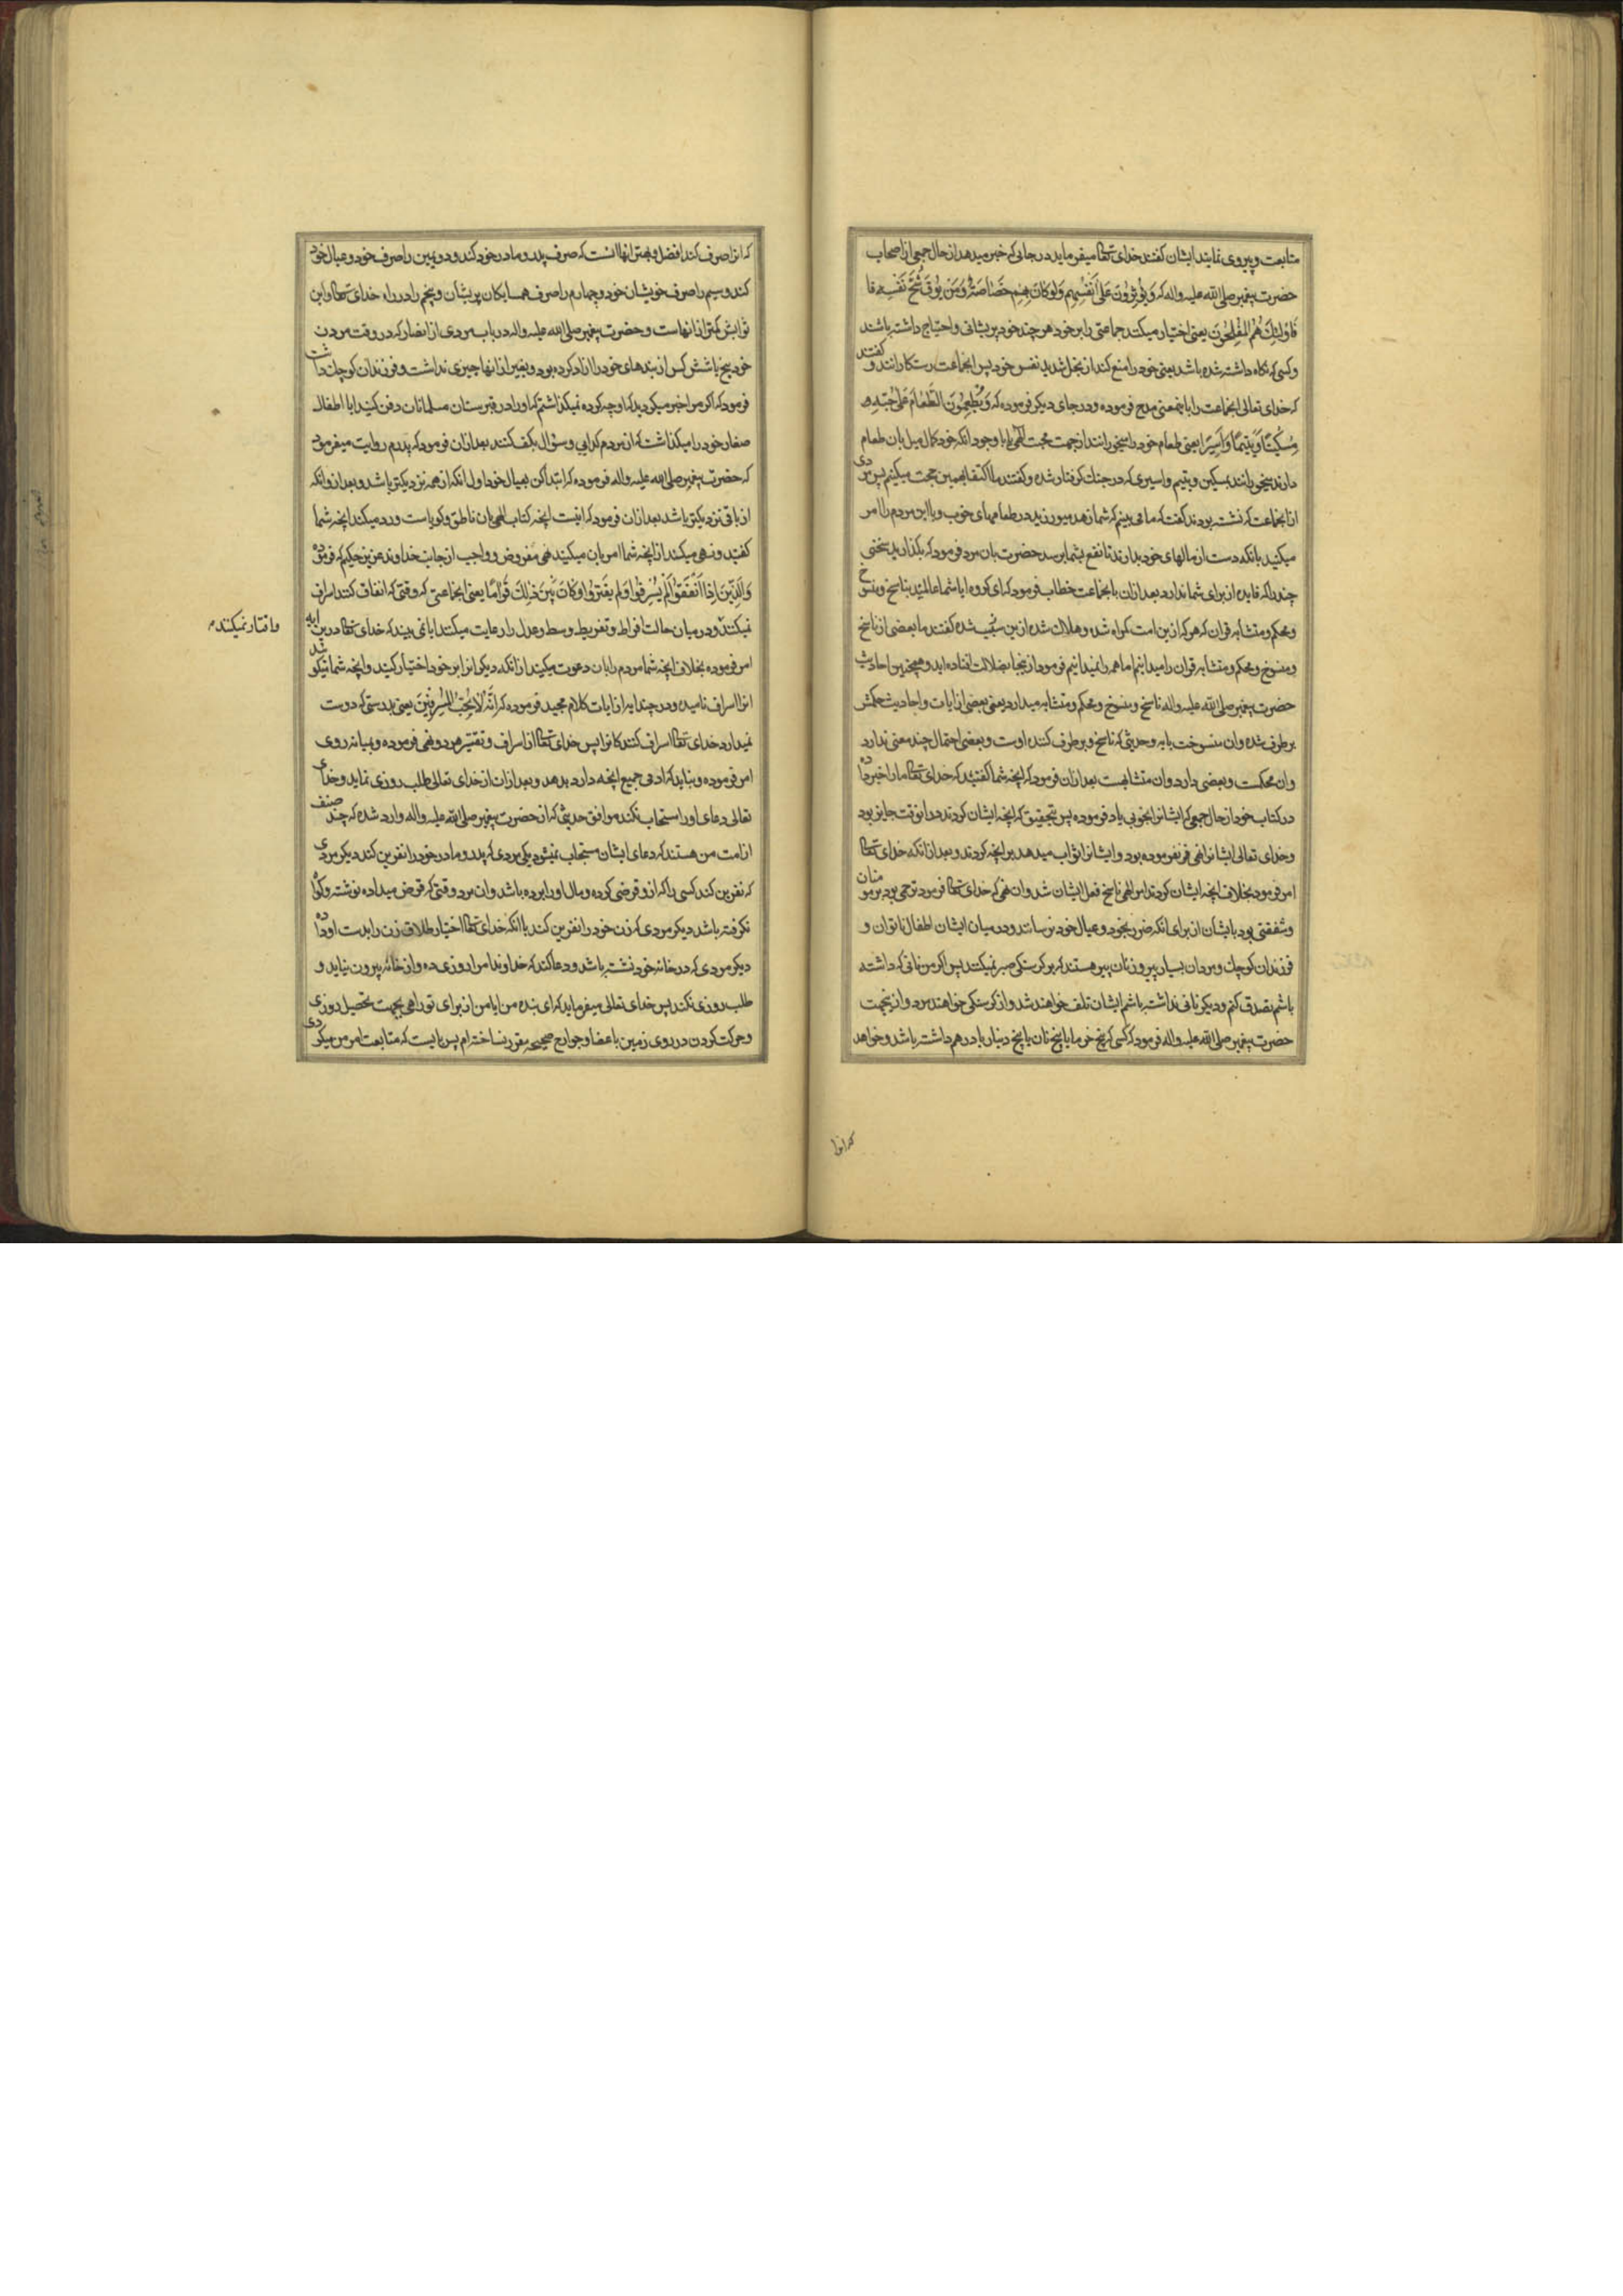 متابعت و پیروی نمایند ایشان گفتند خدای تعالی میفرماید در جائی که خبر میدهد از حال جمعی از اصحاب
حضرت پیغمبر صلی الله علیه واله که وَیُؤثِرُونَ عَلی اَنفُسِهِم وَلَو کانَ بِهِم خَصاصَةٌ وَمَن یُوقَ شُحَّ نَفسِه فا
فَاُولئِكَ هُمُ المُفلِحُونَ یعنی اختیار میکنند جماعتی را بر خود هر چند خود پریشانی و احتیاج داشته باشند
و کسی که نگاه داشته شده باشد یعنی خود را منع کند از بخل شدید نفس خود پس انجماعت رستکارانند و گفتند
که خدای تعالی انجماعت را باینمعنی مدح فرموده و در جای دیکر فرموده که وَیُطعِمُونَ الطَّعامَ عَلی حُبِّهِ
مِسکینًا وَیَتیمًا وَاَسیرًا یعنی طعام خود را میخورانند از جهت محبت الهی یا با وجود انکه خود کمال میل بان طعام
دارند میخورانند بمسکین و یتیم و اسیری که در جنك کرفتار شده و گفتند ما اکتفا بهمین حجت میکنیم پس مردی
از انجماعت که نشسته بودند گفت که ما می بینیم که شما زهد میورزید در طعامهای خوب و با این مردم را امر
میکنید بانکه دست از مالهای خود بدارند تا نفع بشما برسد حضرت بان مرد فرمود که بگذارید سخنی
چند را که فایده از برای شما ندارد بعد از ان با انجماعت خطاب فرمود که ای کروه ایا شما عالمید بناسخ و منسوخ
و محکم و متشابه قران که هر که ازین امت کمراه شده و هلاك شده ازین سبب شده گفتند ما بعضی از ناسخ
و منسوخ و محکم و متشابه قران را میدانیم اما همه را نمیدانیم فرمود از ینجا بضلالت افتاده اید و همچنین احادیث
حضرت پیغمبر صلی الله علیه واله ناسخ و منسوخ و محکم و متشابه میدارد یعنی بعضی از ایات و احادیث حکمش
بر طرف شده و ان منسوخست بایه و حدیثی که ناسخ و برطرف کننده اوست و بعضی احتمال چند معنی ندارد
وان محکمست و بعضی دارد و ان متشابهست بعد از ان فرمود که انچه شما گفتید که خدای تعالی ما را خبر داده
در کتاب خود از حال جمعی که ایشانرا بخوبی یاد فرموده پس بتحقیق که انچه ایشان کردند در انوقت جایز بود
و خدای تعالی ایشانرا نهی فرموده بود و ایشانرا ثواب میدهد بر انچه کردند و بعد از انکه خدای تعالی
امر فرمود بخلاف انچه ایشان کردند امر الهی ناسخ فعل ایشان شد و ان نهی که خدای تعالی فرمود ترحمی بود بر مومنان
و شفقتی بود بایشان از برای انکه ضرر بخود و عیال خود نرسانند و در میان ایشان اطفال ناتوان و
فرزندان کوچك و مردان بسیار پیر و زنان پیر هستند که بر کرسنکی صبر نمیکنند پس اکر من نانی که داشته
باشم تصدق کنم و دیکر نانی نداشته باشم ایشان تلف خواهند شد و از کرسنکی خواهند مرد و ازینجهت
حضرت پیغمبر صلی الله علیه واله فرمود که کسی که پنج خرما یا پنج نان یا پنج دینار یا درهم داشته باشد و خواهد
که انرا
که انرا صرف کند افضل و بهتر انها انست که صرف پدر و مادر خود کند و دویمین را صرف خود و عیال خود
کند و سیم را صرف خویشان خود و چهارم را صرف همسایکان پریشان و پنجم را در راه خدای تعالی و این
ثوابش کمتر از انهاست و حضرت پیغمبر صلی الله علیه واله در باب مردی از انصار که در وقت مردن
خود پنج یا شش کس از بندهای خود را ازاد کرده بود و بغیر از انها چیزی نداشت و فرزندان کوچك داشت
فرمود که اکر مرا خبر میکردید که او چه کرده نمیگذاشتم که او را در قبرستان مسلمانان دفن کنید ایا اطفال
صغار خود را میکذاشت که از مردم کدایی و سؤال بکف کنند بعد از ان فرمود که پدرم روایت میفرمود
که حضرت پیغمبر صلی الله علیه واله فرموده که ابتدا کن بعیال خود اول انکه از همه نزدیکتر باشد و بعد از و انکه
از باقی نزدیکتر باشد بعد از ان فرمود که اینست انچه کتاب الهی بان ناطق و کویاست و رد میکند انچه شما
گفتید و نهی میکند از انچه شما امر بان میکنید نهی مفروض و واجب از جانب خداوند عزیز حکیم که فرموده
وَالَّذینَ اِذا اَنفَقُوا لَم یُسرِفُوا وَلَم یَقتُرُوا وَکانَ بَینَ ذلِكَ قَوامًا یعنی انجماعتی که وقتی که انفاق کنند اسراف
نمیکنند و در میان حالت افراط و تفریط وسط و عدل را رعایت میکنند ایا نمی بیند که خدای تعالی درین ایه
واقتار نمیکنند
امر فرموده بخلاف انچه شما مردم را بان دعوت میکنید از انکه دیکرانرا بر خود اختیار کنید و انچه شما نیکو شد
انرا اسراف نامیده و در چند ایه از ایات کلام مجید فرموده که اِنَّهُ لا یُحِبُّ المُسرِفینَ یعنی بدرستی که دوست
نمیدارد خدای تعالی اسراف کنندکانرا پس خدای تعالی از اسراف و تقتیر هر دو نهی فرموده و بمیانه روی
امر فرموده و نباید که ادمی جمیع انچه دارد بدهد و بعد از ان از خدای تعالی طلب روزی نماید و خدای
تعالی دعای او را استجاب نکند موافق حدیثی که از حضرت پیغمبر صلی الله علیه واله وارد شده که چند صنف
از امت من هستند که دعای ایشان مستجاب نمیشود یکی مردی که پدر و مادر خود را نفرین کند دیکر مردی
که نفرین کند کسی را که ازو قرضی کرده و مال او را برده باشد و ان مرد وقتی که قرض میداده نوشته و کواه
نکرفته باشد دیکر مردی که زن خود را نفرین کند با انکه خدای تعالی اختیار طلاق زن را بدست او داده
دیکر مردی که در خانه خود نشسته باشد و دعا کند که خداوندا مرا روزی ده و از خانه بیرون نیاید و
طلب روزی نکند پس خدای تعالی میفرماید که ای بنده من ایا من از برای تو راهی بجهت تحصیل روزی
و حرکت کردن در روی زمین باعضا و جوارح صحیحه مقرر نساخته ام پس بایست که متابعت امر من میکردی